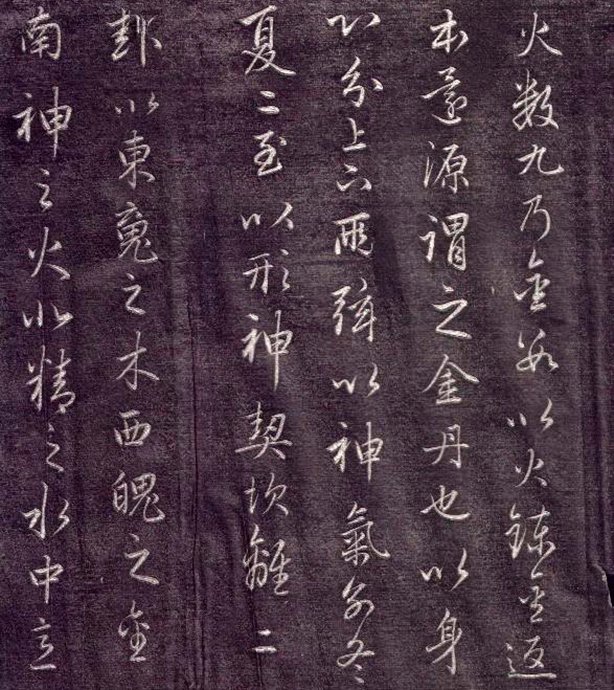 火數九乃金數以火鍊金返
本還源謂之金丹也以身
心分上下兩弦以神氣分冬
夏二至以形神契坎離二
卦以東魂之木西魄之金
南神之火北精之水中意